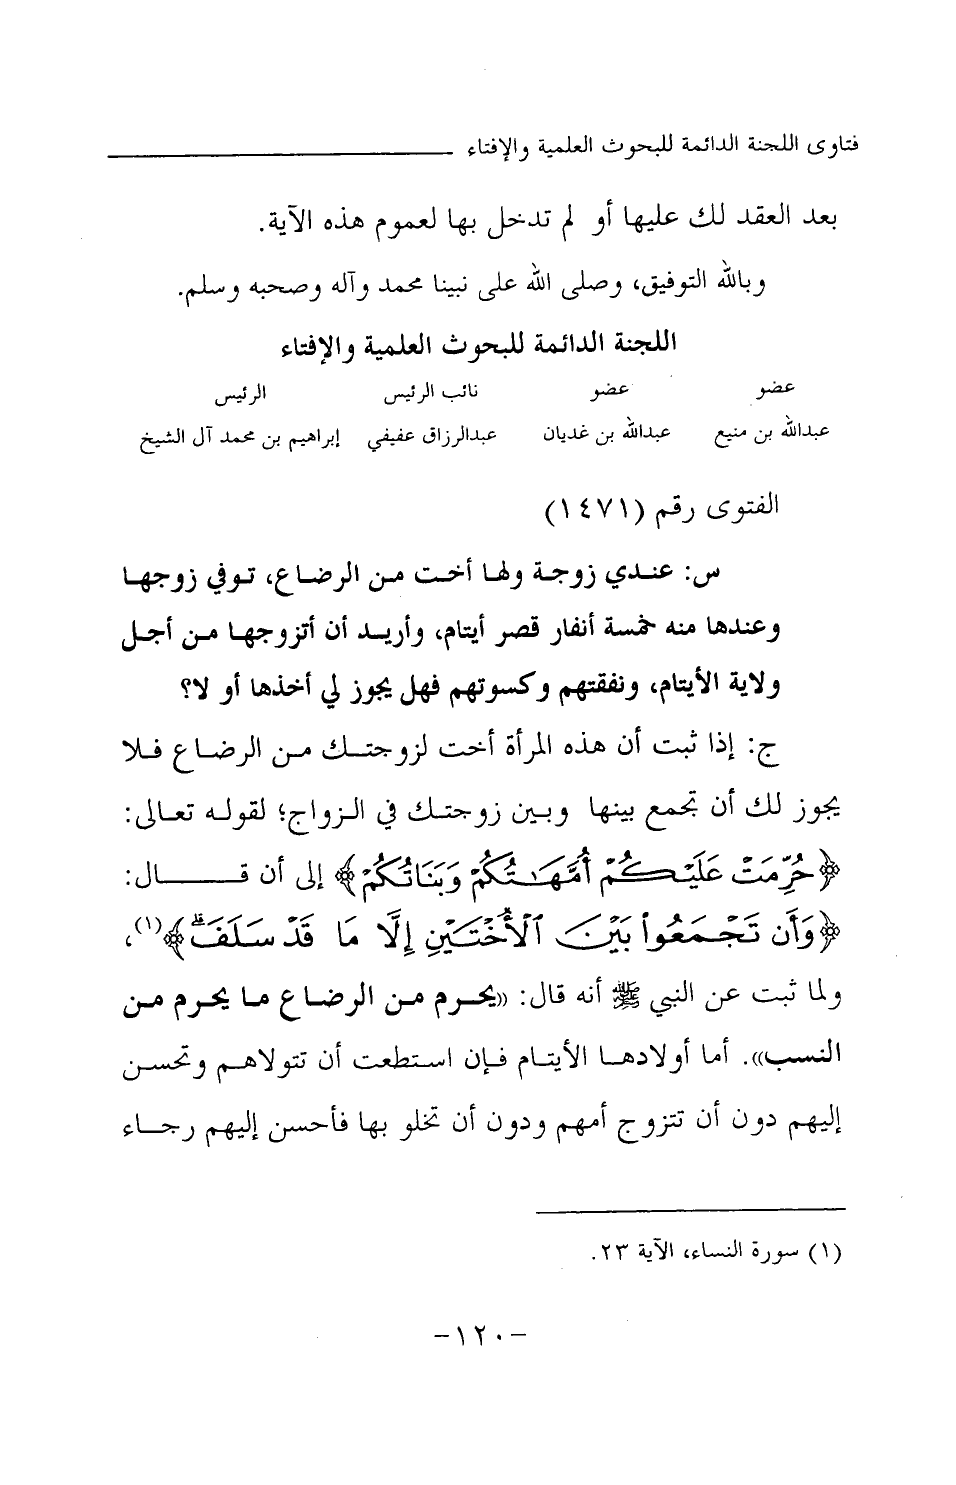 فتاوى اللجنة الدائمة للبحوث العلمية والإفتاء
بعد العقد لك عليها أو لم تدخل بها لعموم هذه الآية.
وبالله التوفيق، وصلى الله على نبينا محمد وآله وصحبه وسلم.
اللجنة الدائمة للبحوث العلمية والإفتاء
عضو عضو نائب الرئيس الرئيس
عبدالله بن منيع عبدالله بن غديان عبدالرزاق عفيفي إبراهيم بن محمد آل الشيخ
الفتوى رقم (١٤٧١)
س: عندي زوجة ولها أخت من الرضاع، توفي زوجها
وعندها منه خمسة أنفار قصر أيتام، وأريد أن أتزوجها من أجل
ولاية الأيتام، ونفقتهم وكسوتهم فهل يجوز لي أخذها أو لا؟
ج: إذا ثبت أن هذه المرأة أخت لزوجتك من الرضاع فلا
يجوز لك أن تجمع بينها وبين زوجتك في الزواج؛ لقوله تعالى:
﴿حُرِّمَتْ عَلَيْكُمْ أُمَّهَٰتُكُمْ وَبَنَاتُكُمْ﴾ إلى أن قال:
﴿وَأَن تَجْمَعُوا۟ بَيْنَ ٱلْأُخْتَيْنِ إِلَّا مَا قَدْ سَلَفَ ۗ﴾(١)،
ولما ثبت عن النبي ﷺ أنه قال: «يحرم من الرضاع ما يحرم من
النسب». أما أولادها الأيتام فإن استطعت أن تتولاهم وتحسن
إليهم دون أن تتزوج أمهم ودون أن تخلو بها فأحسن إليهم رجاء
(١) سورة النساء، الآية ٢٣.
-١٢٠-